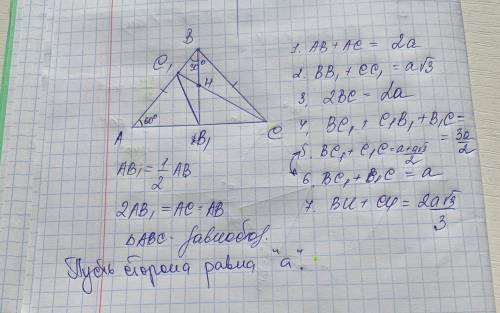 B
30°
C₁
H
A
60°
B₁
C
AB₁ = 1/2 AB
2AB₁ = AC = AB
ΔABC - равност.
Пусть сторона равна "a".
1. AB + AC = 2a
2. BB₁ + CC₁ = a√3
3. 2BC = 2a
4. BC₁ + C₁B₁ + B₁C = 3a/2
5. BC₁ + C₁C = a+a√3/2
6. BC₁ + B₁C = a
7. BH + CH = 2a√3/3